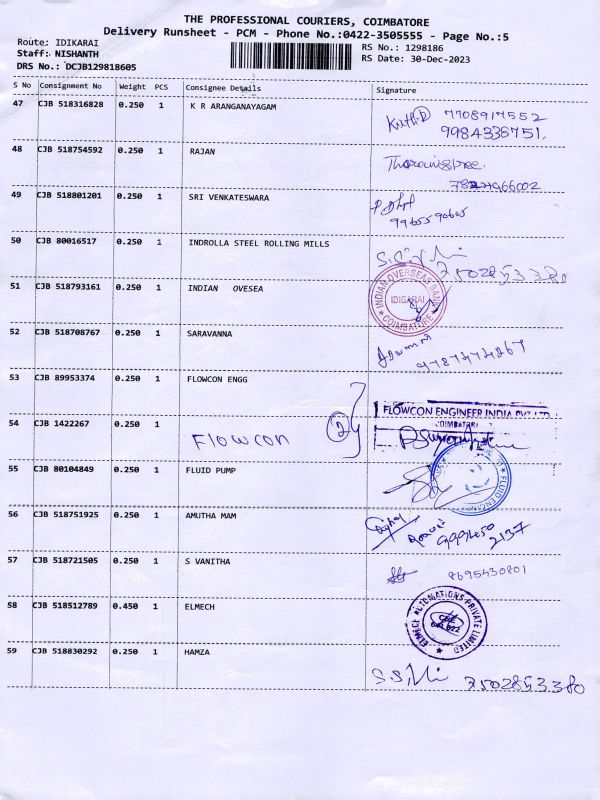 THE PROFESSIONAL COURIERS, COIMBATORE
Delivery Runsheet - PCM - Phone No.:0422-3505555 - Page No.:5
Route: IDIKARAI
Staff: NISHANTH
DRS No.: DCJB129818605
RS No.: 1298186
RS Date: 30-Dec-2023
S No Consignment No Weight PCS Consignee Details Signature
47 CJB 518316828 0.250 1 K R ARANGANAYAGAM
7708917552
9984336751
48 CJB 518754592 0.250 1 RAJAN
49 CJB 518801201 0.250 1 SRI VENKATESWARA
9965590605
50 CJB 80016517 0.250 1 INDROLLA STEEL ROLLING MILLS
7502853380
51 CJB 518793161 0.250 1 INDIAN OVESEA
INDIAN OVERSEAS BANK
IDIGARAI
COIMBATORE
52 CJB 518708767 0.250 1 SARAVANNA
9787474267
53 CJB 89953374 0.250 1 FLOWCON ENGG
FLOWCON ENGINEER INDIA PVT LTD
54 CJB 1422267 0.250 1
Flowcon 2
55 CJB 80104849 0.250 1 FLUID PUMP
56 CJB 518751925 0.250 1 AMUTHA MAM
2137
57 CJB 518721505 0.250 1 S VANITHA
8695430801
58 CJB 518512789 0.450 1 ELMECH
ELMECH AUTOMATIONS PRIVATE LIMITED
59 CJB 518830292 0.250 1 HAMZA
7502853380